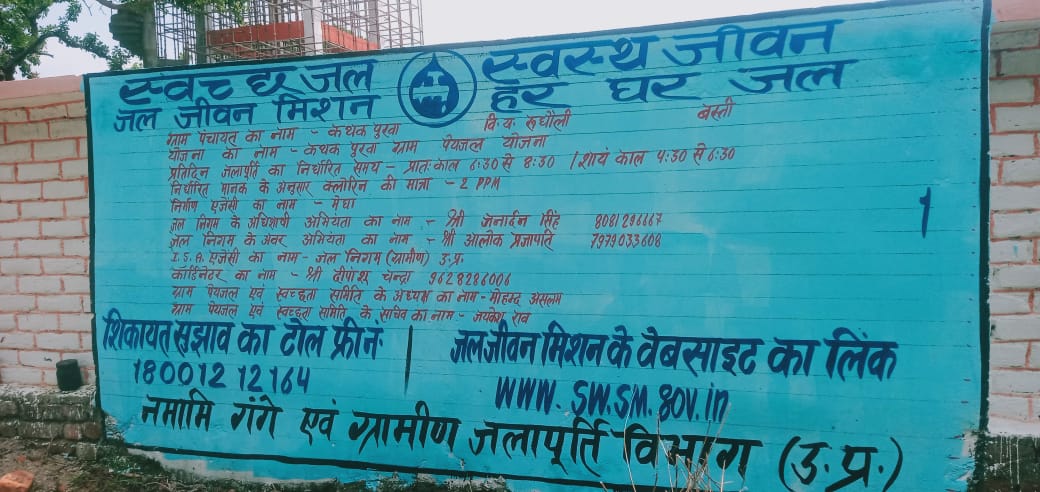 स्वच्छ जल स्वस्थ जीवन
जल जीवन मिशन हर घर जल
ग्राम पंचायत का नाम - कथक पुरवा वि.ख. रुधौली बस्ती
योजना का नाम - कथक पुरवा ग्राम पेयजल योजना
प्रतिदिन जलापूर्ति का निर्धारित समय - प्रातः काल 6:30 से 8:30 / शायं काल 4:30 से 6:30
निर्धारित मानक के अनुसार क्लोरिन की मात्रा - 2 PPM
निर्माण एजेंसी का नाम - मेघा
जल निगम के अधिशाषी अभियंता का नाम - श्री जनार्दन सिंह 8081296667
जल निगम के अवर अभियंता का नाम - श्री आलोक प्रजापति 7979033608
I.S.A. एजेंसी का नाम - जल निगम (ग्रामीण) उ.प्र.
कोर्डिनेटर का नाम - श्री दीपांशू चन्द्रा 9628286006
ग्राम पेयजल एवं स्वच्छता समिति के अध्यक्ष का नाम - मोहम्द असलम
ग्राम पेयजल एवं स्वच्छता समिति के सचिव का नाम - जयकेश राव
1
शिकायत सुझाव का टोल फ्री नं.
180012 12 164
जल जीवन मिशन के वैबसाइट का लिंक
WWW. SW.SM. gov.in
नमामि गंगे एवं ग्रामीण जलापूर्ति विभाग (उ.प्र.)